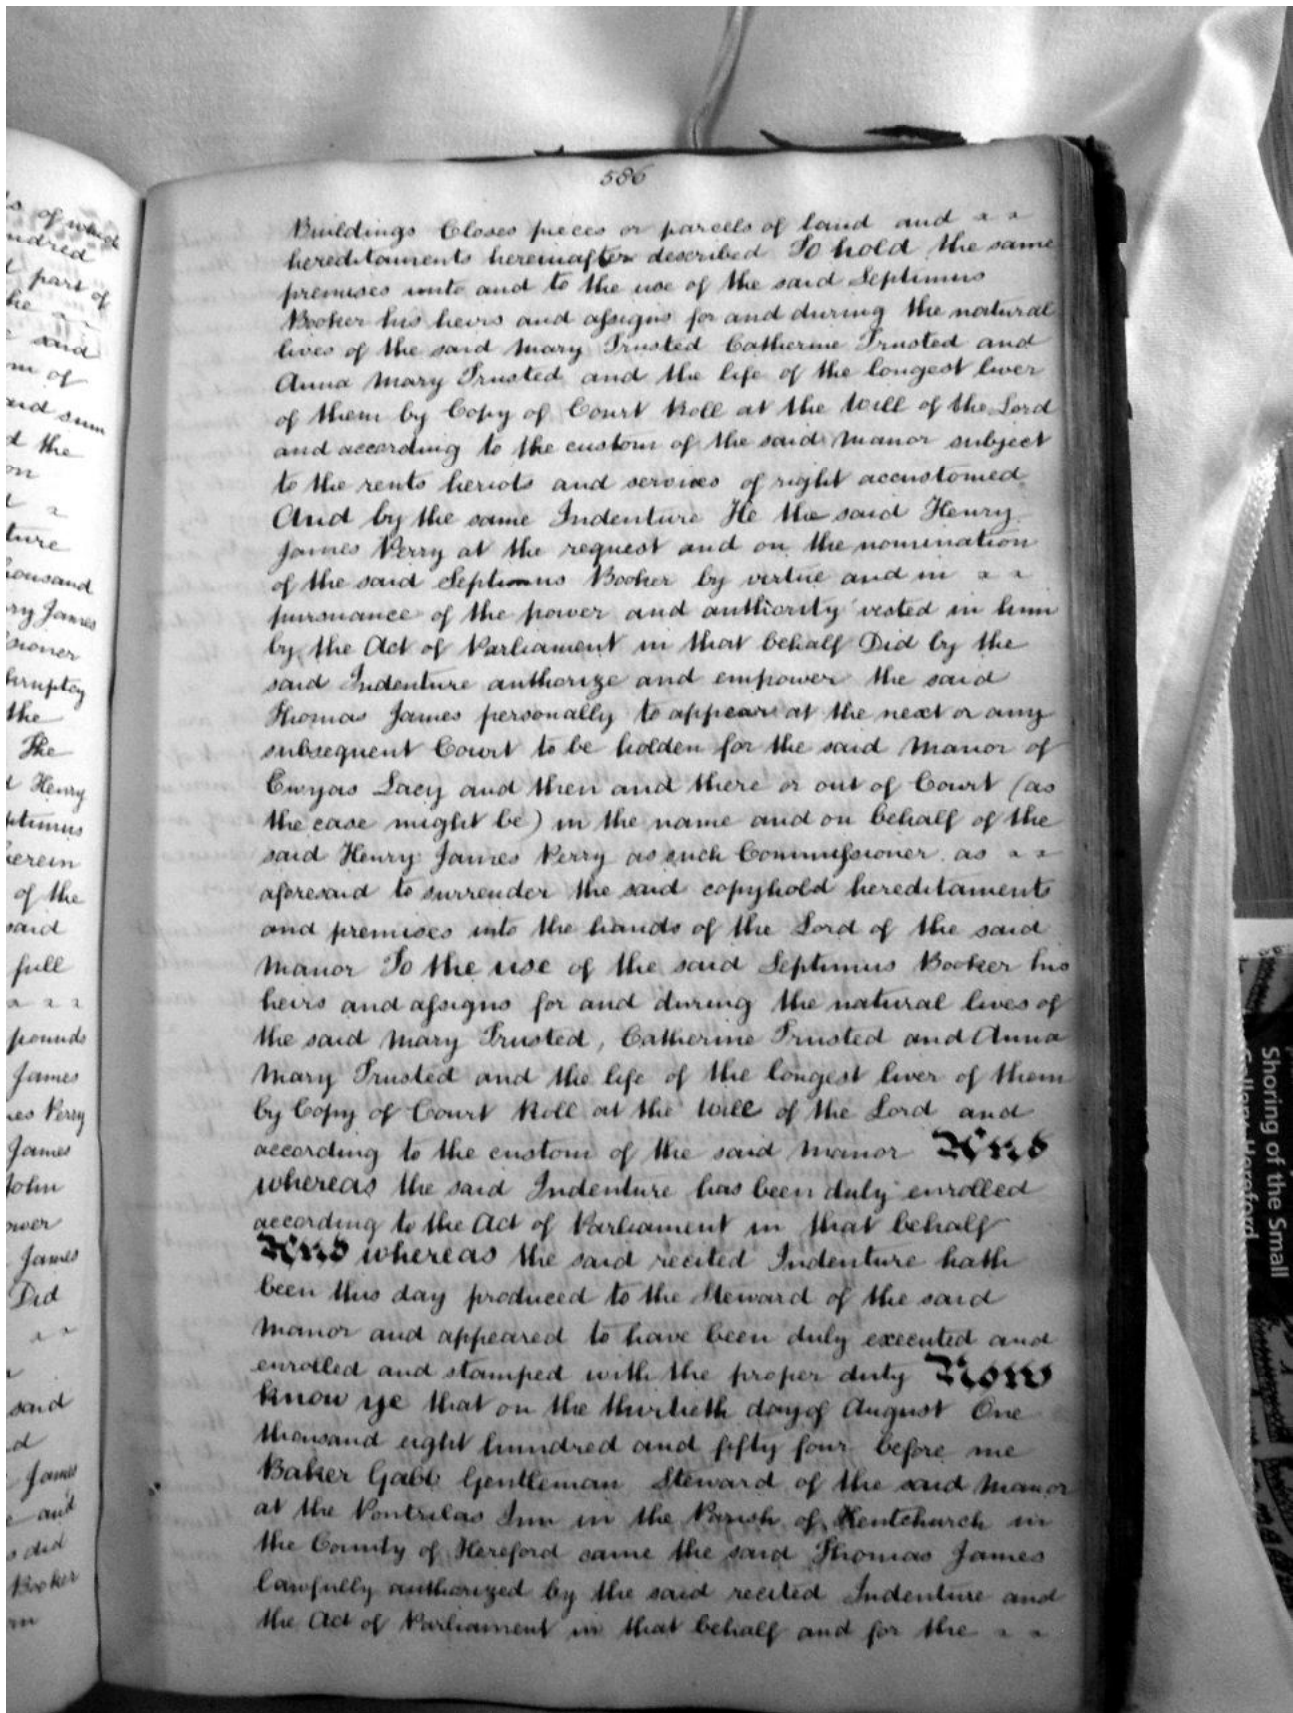 s of which
ndred
d part of
he ~ ~
e said
m of
aid sum
d the
on
d ~
ture
housand
ry James
sioner
kruptcy
the
The
d Henry
ptimus
herein
of the
said
full
~ ~ ~
pounds
James
es Perry
James
John
ower
James
Did
~ ~
said
d
James
e and
s did
Booker
m
586
Buildings Closes pieces or parcels of land and ~ ~
hereditaments hereinafter described To hold the same
premises unto and to the use of the said Septimus
Booker his heirs and assigns for and during the natural
lives of the said Mary Trusted Catherine Trusted and
Anna Mary Trusted and the life of the longest liver
of them by Copy of Court Roll at the Will of the Lord
and according to the custom of the said Manor subject
to the rents heriots and services of right accustomed
And by the same Indenture He the said Henry
James Perry at the request and on the nomination
of the said Septimus Booker by virtue and in ~ ~
pursuance of the power and authority vested in him
by the Act of Parliament in that behalf Did by the
said Indenture authorize and empower the said
Thomas James personally to appear at the next or any
subsequent Court to be holden for the said Manor of
Ewyas Lacy and then and there or out of Court (as
the case might be) in the name and on behalf of the
said Henry James Perry as such Commissioner as ~ ~
aforesaid to surrender the said copyhold hereditaments
and premises into the hands of the Lord of the said
Manor To the use of the said Septimus Booker his
heirs and assigns for and during the natural lives of
the said Mary Trusted, Catherine Trusted and Anna
Mary Trusted and the life of the longest liver of them
by Copy of Court Roll at the Will of the Lord and
according to the custom of the said Manor And
whereas the said Indenture has been duly enrolled
according to the Act of Parliament in that behalf
And whereas the said recited Indenture hath
been this day produced to the Steward of the said
Manor and appeared to have been duly executed and
enrolled and stamped with the proper duty Now
know ye that on the thirtieth day of August One
thousand eight hundred and fifty four before me
Baker Gabb Gentleman Steward of the said Manor
at the Pontrilas Inn in the Parish of Kentchurch in
the County of Hereford came the said Thomas James
lawfully authorized by the said recited Indenture and
the Act of Parliament in that behalf and for the ~ ~
Shoring of the Small
Gallery Hereford